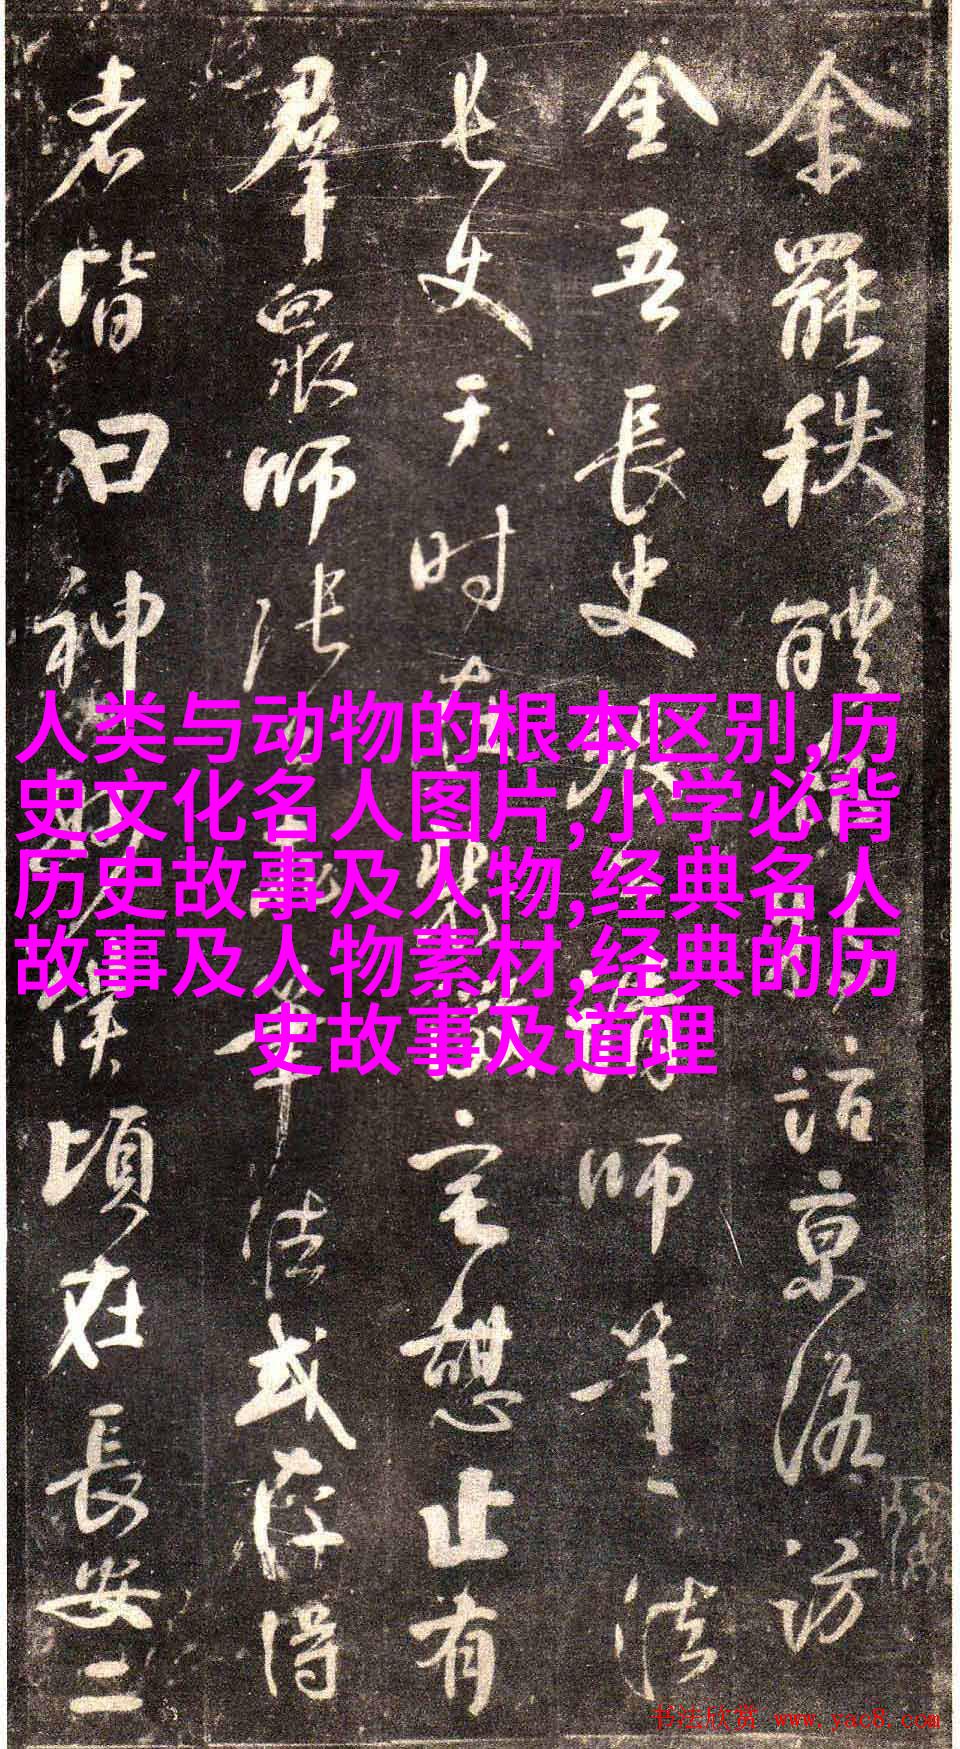 余罷秩醴詣京洛訪
金吾長史張師筆法
長史于時在裴儆宅憩止有
羣眾師張筆法或存得
者皆曰神僕頃在長安二
人类与动物的根本区别,历
史文化名人图片,小学必背
历史故事及人物,经典名人
故事及人物素材,经典的历
史故事及道理
书法欣赏 www.yac8.com